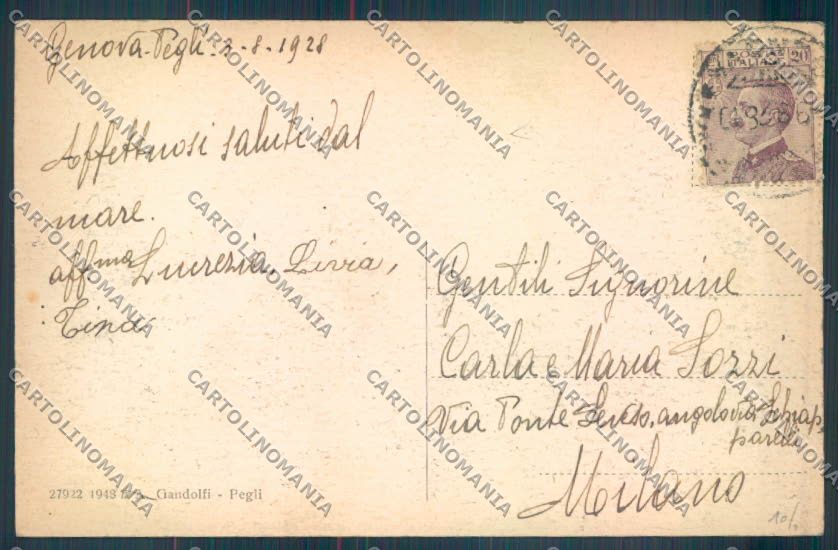 Genova-Pegli-2-8-1928
Affettuosi saluti dal
mare.
aff.ma Lucrezia, Livia,
Tina
Gentili Signorine
Carla e Maria Sozzi
Via Ponte Seveso, angolo via Schiap
parelli
Milano
27922 1943 Gandolfi - Pegli
POSTE
ITALIANE
20
10/.
CARTOLINOMANIA